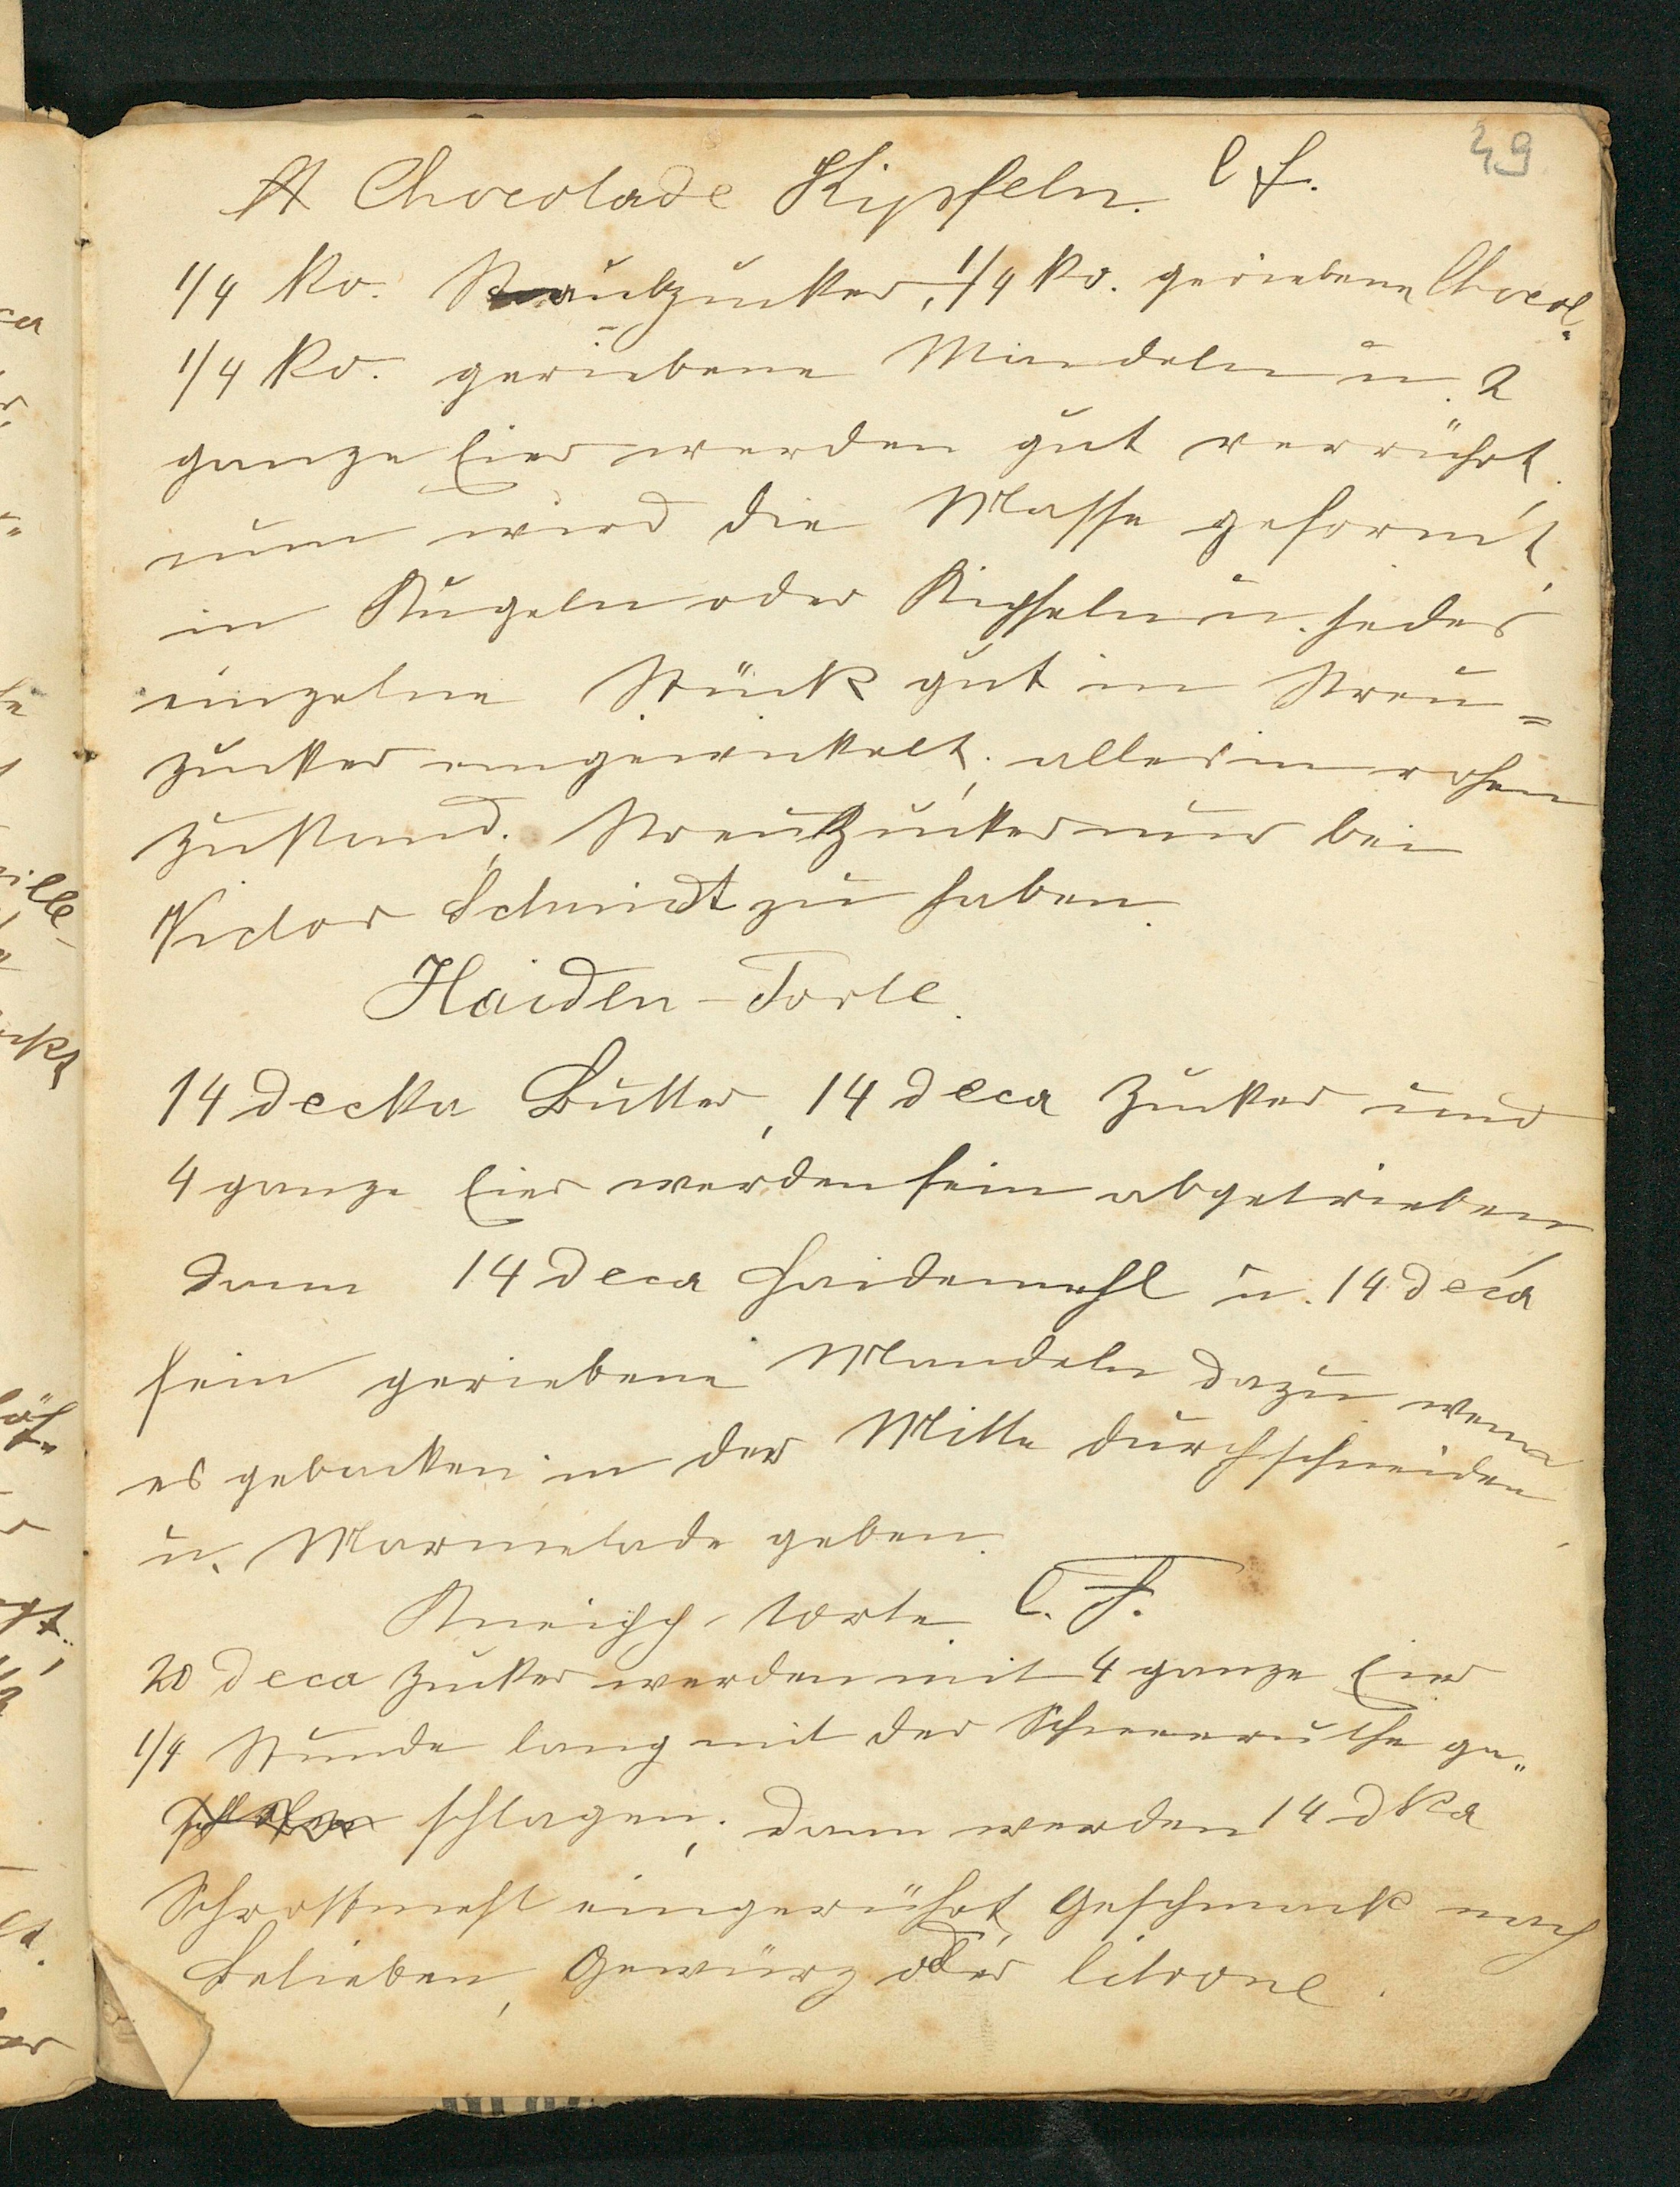 49
A Chocolade Kipfeln. C f.
1/4 Ko. Staubzucker, 1/4 Ko. geriebene Chocol.
1/4 Ko. geriebene Mandeln u. 2
ganze Eier werden gut verrührt.
nun wird die Masse geformt,
in Kugeln oder Kipfeln u. jedes
einzelne Stück gut in Streu=
zucker eingewickelt; alles in rohem
Zustand. Streuzucker nur bei
Victor Schmidt zu haben.
Haiden-Torte.
14 decka Butter, 14 deca Zucker und
4 ganze Eier werden fein abgetrieben,
dann 14 deca Haidemehl u. 14 deca
fein geriebene Mandeln dazu wenn
es gebacken in der Mitte durchschneiden
u. Marmelade geben.
Kneipp-torte C. F.
20 deca Zucker werden mit 4 ganze Eier
1/4 Stunde lang mit der Schneeruthe ge„
schlagen; dann werden 14 dka
Schrottmehl eingerührt, Geschmack nach
Belieben, Gewürz oder Citrone.